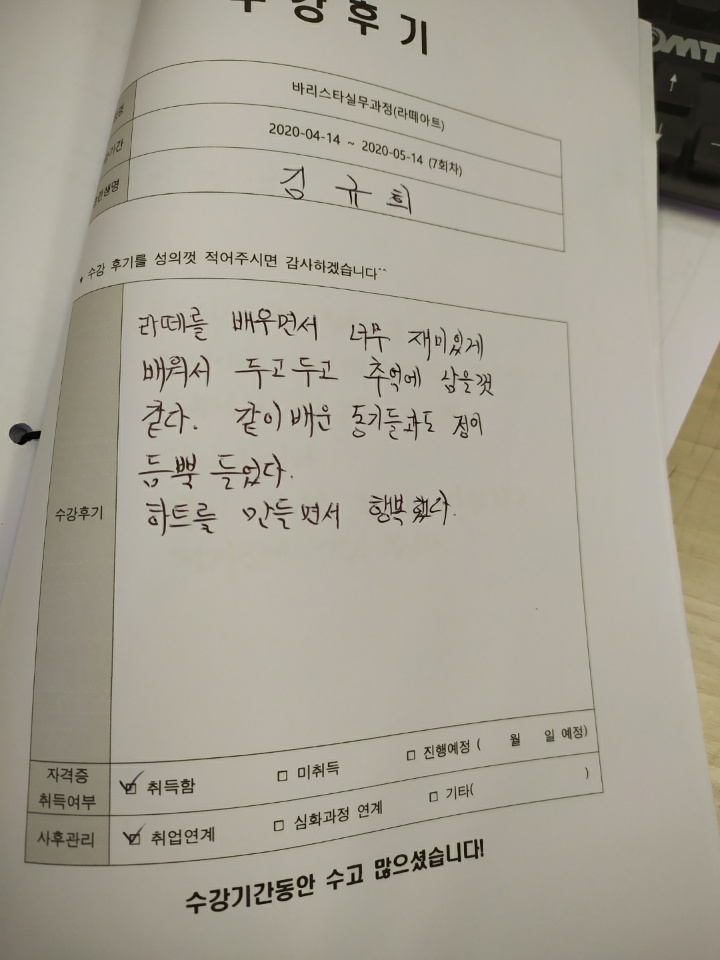 수강후기
바리스타실무과정(라떼아트)
2020-04-14 ~ 2020-05-14 (7회차)
김규희
수강 후기를 성의껏 적어주시면 감사하겠습니다^^
수강후기
라떼를 배우면서 너무 재미있게
배워서 두고두고 추억에 남을껏
같다. 같이 배운 동기들과도 정이
듬뿍 들었다.
하트를 만들면서 행복했다.
자격증 취득여부 ☑ 취득함 □ 미취득 □ 진행예정 ( 월 일 예정)
사후관리 ☑ 취업연계 □ 심화과정 연계 □ 기타( )
수강기간동안 수고 많으셨습니다!